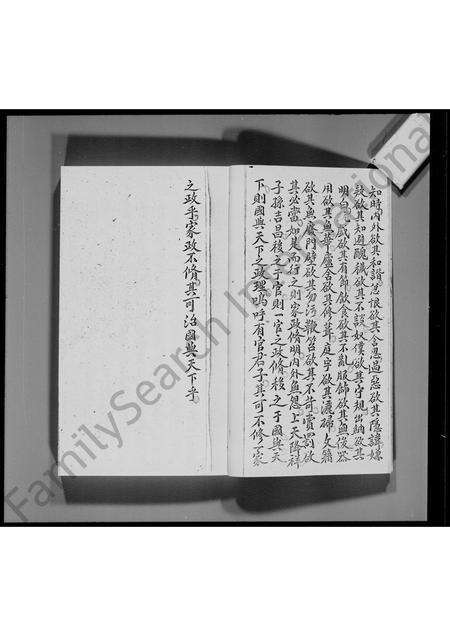 知時內外欲其和諧忿恨欲其含忍過惡欲其隱諱嫌
疑欲其知避醜穢欲其不談奴僕欲其守規出納欲其
明白凶感欲其有節飲食欲其不亂服飾欲其無侈器
用欲其無華廬舍欲其修葺庭宇欲其灑掃文籍
欲其無廢門壁欲其勿污鞭笞欲其不苛賣罰欲
其必當如其而行之則家政脩明內外無怨上天降祥
子孫吉昌後之于官則一官之政脩移之于國與天
下則國與天下之政理嗚呼有官君子其可不修一家
之政乎家政不脩其可治國與天下乎
FamilySearch International